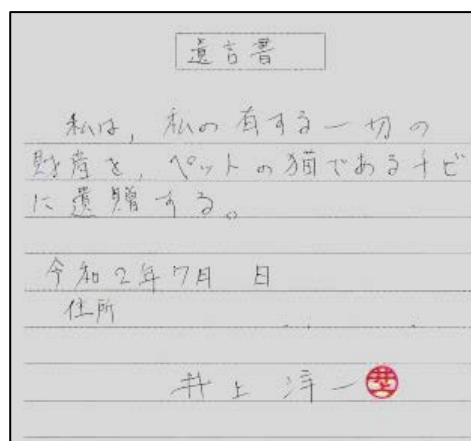 遺言書
私は、私の有する一切の
財産を、ペットの猫であるチビ
に遺贈する。
令和2年7月 日
住所
井上
井上